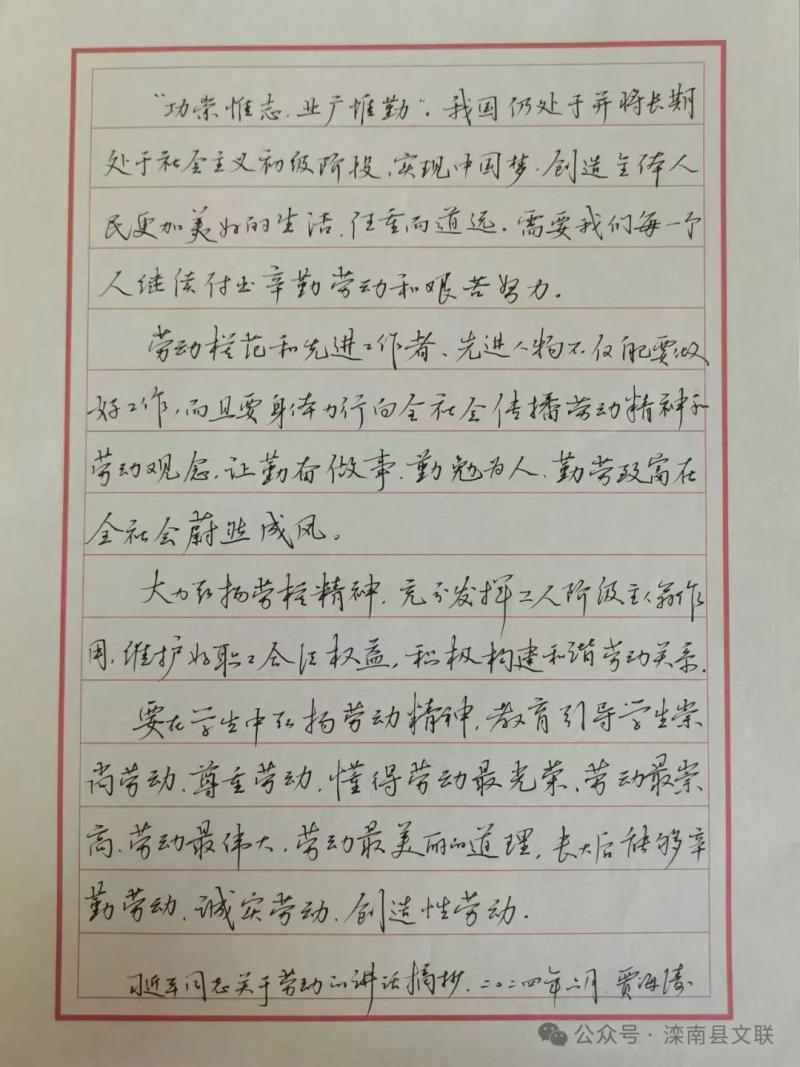 “功崇惟志，业广惟勤”。我国仍处于并将长期
处于社会主义初级阶段，实现中国梦，创造全体人
民更加美好的生活，任重而道远。需要我们每一个
人继续付出辛勤劳动和艰苦努力。
劳动模范和先进工作者、先进人物不仅自己要做
好工作，而且要身体力行向全社会传播劳动精神和
劳动观念，让勤奋做事、勤勉为人、勤劳致富在
全社会蔚然成风。
大力弘扬劳模精神，充分发挥工人阶级主人翁作
用，维护好职工合法权益，积极构建和谐劳动关系。
要在学生中弘扬劳动精神，教育引导学生崇
尚劳动、尊重劳动，懂得劳动最光荣、劳动最崇
高、劳动最伟大、劳动最美丽的道理，长大后能够辛
勤劳动、诚实劳动、创造性劳动。
习近平同志关于劳动的讲话摘抄，二〇二四年二月，贾海涛
公众号·滦南县文联